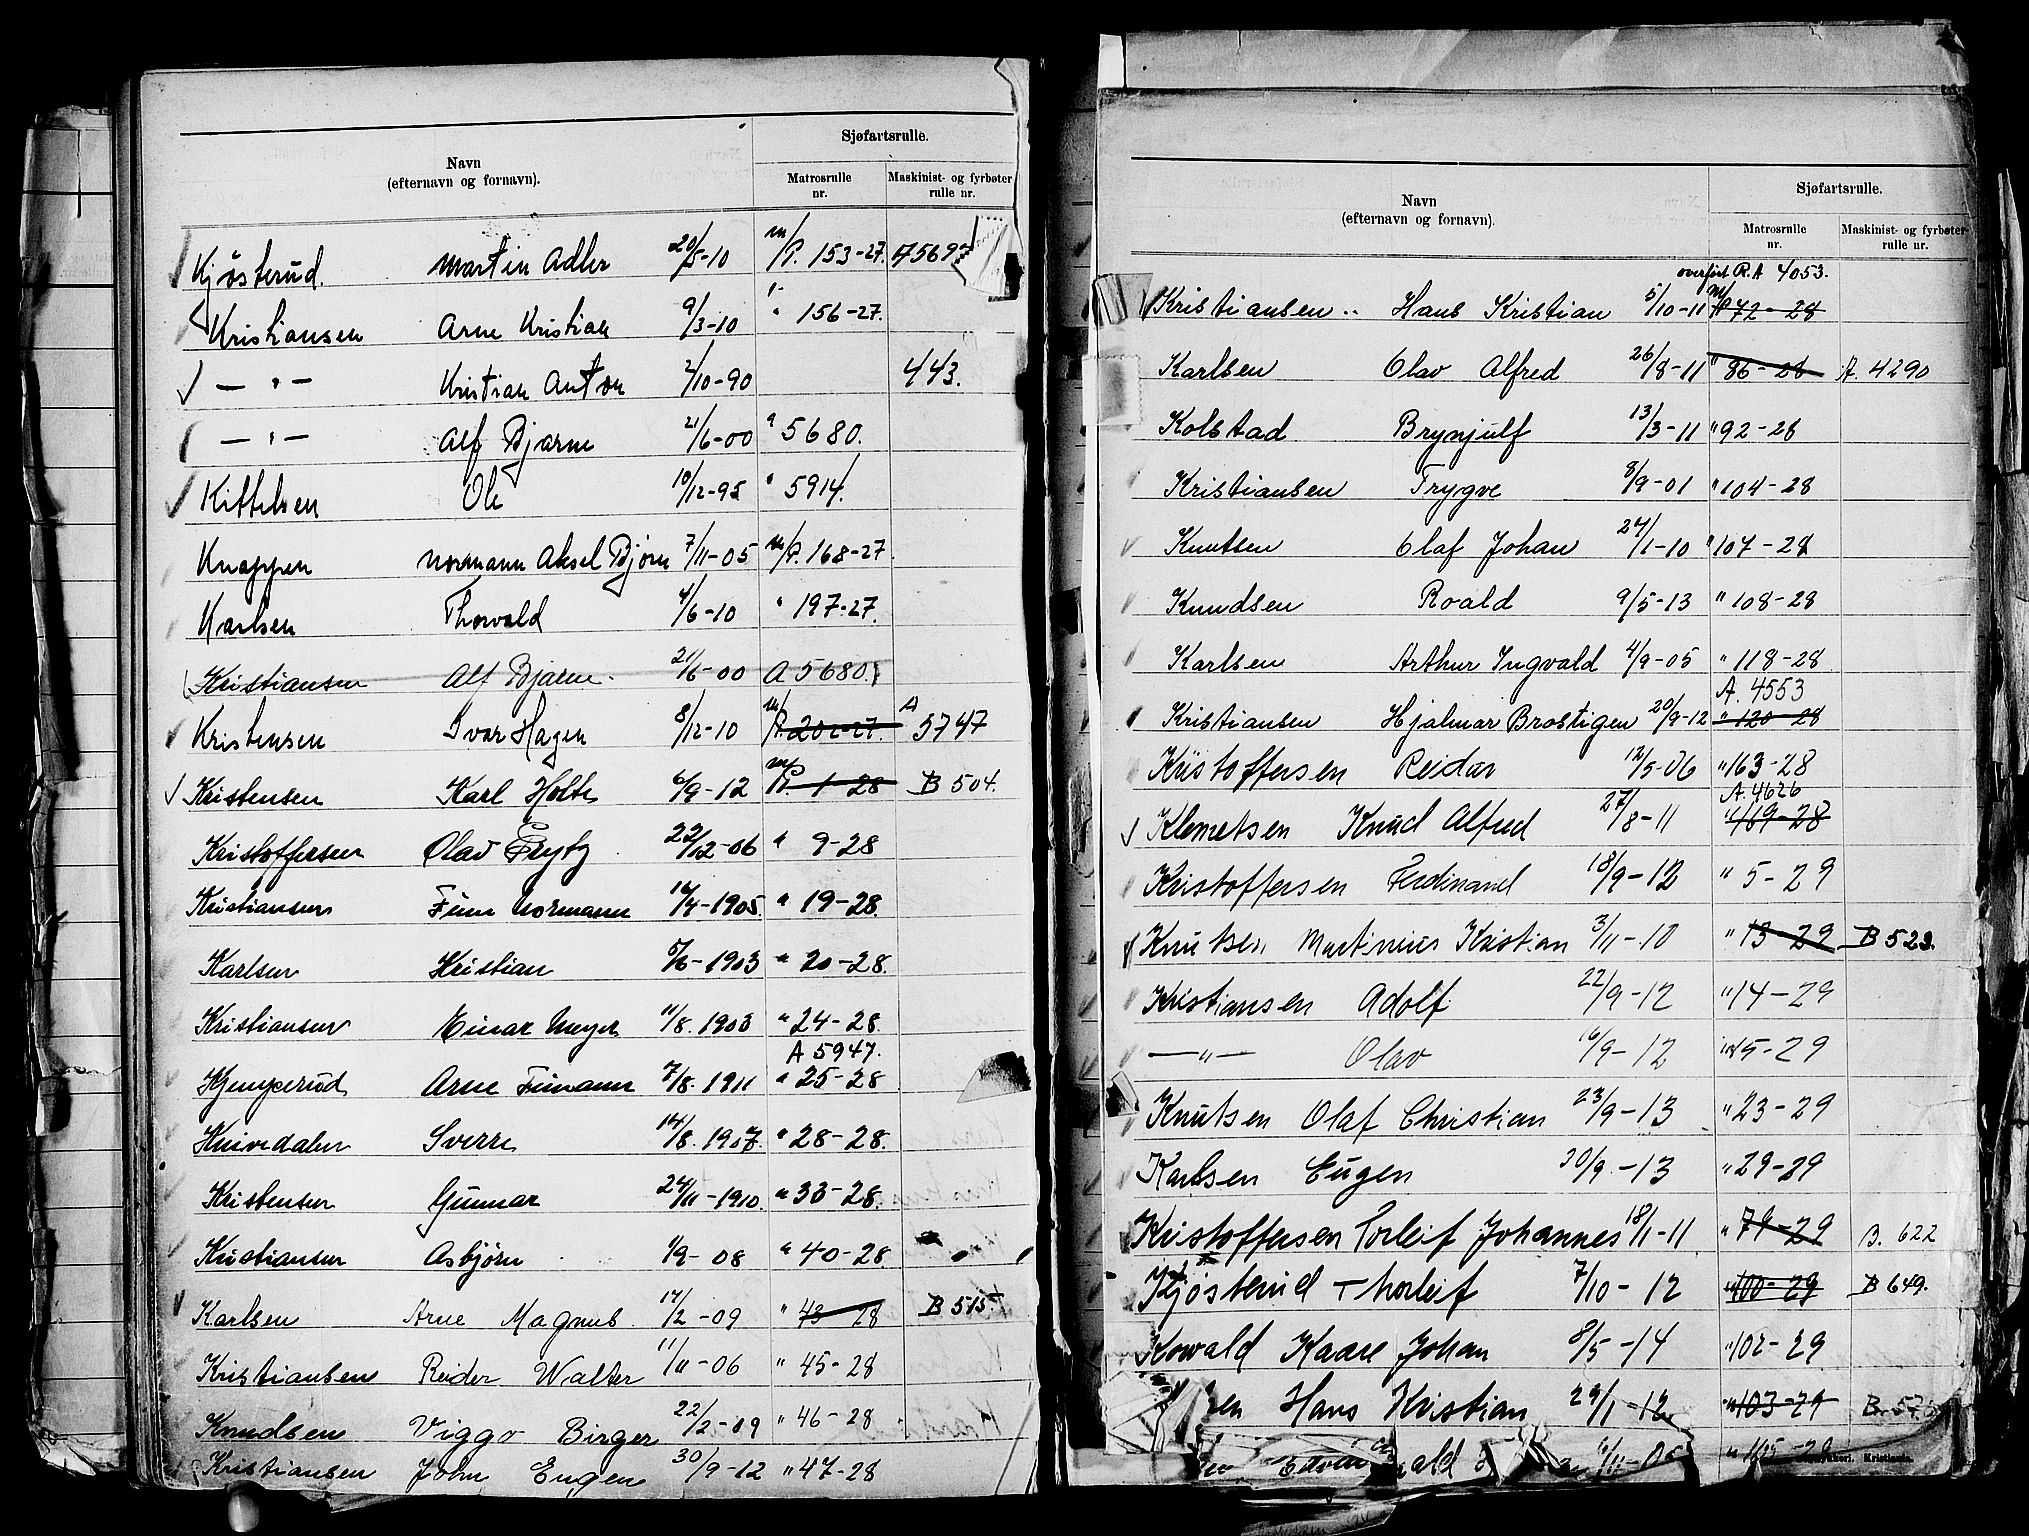 Navn
(efternavn og fornavn).
Sjøfartsrulle.
Matrosrulle
nr.
Maskinist- og fyrbøter
rulle nr.
Kjösterud. Martin Adler 20/5-10 m/P. 153-27. A 5697
Kristiansen Arne Kristian 9/3-10 " 156-27.
— " — Kristian Anton 2/10-90 443.
— " — Alf Bjarne 21/6-00 " 5680.
Kittelsen Ole 10/12-95 " 5914.
Knappen Normann Aksel Bjørn 7/11-05 m/P. 168-27
Karlsen Thorvald 4/6-10 " 197-27.
Kristiansen Alf Bjarne 21/6-00 A 5680.
Kristensen Ivar Hagen 8/12-10 m/P. 202-27. A 5747
Kristensen Karl Holte 6/9-12 m/P. 1-28 B 504.
Kristoffersen Olav 22/12-06 " 9-28
Kristiansen Finn Normann 14/4-1905. " 19-28.
Karlsen Kristian 5/6-1903 " 20-28.
Kristiansen Einar Meyer 11/8. 1903 " 24-28.
A 5947.
Kjemperud Arne Finmann 7/8. 1911 " 25-28
Knivedalen Sverre 14/8. 1907. " 28-28.
Kristensen Gunnar 24/11-1910. " 33-28.
Kristiansen Asbjørn 1/9-08 " 40-28.
Karlsen Arne Magnus. 14/2-09 " 43-28 B 515.
Kristiansen Reidar Walter 11/11-06 " 45-28
Knudsen Viggo Birger 22/2-09 " 46-28
Kristiansen John Eugen 30/9-12 " 47-28
Navn
(efternavn og fornavn).
Sjøfartsrulle.
Matrosrulle
nr.
Maskinist- og fyrbøter-
rulle nr.
overført R.A 4053.
Kristiansen Hans Kristian 5/10-11 m/P 72-28
Karlsen Olav Alfred 26/8-11 " 86-28 A. 4290
Kolstad Brynjulf 13/3-11 " 92-28
Kristiansen Trygve 8/9-01 " 104-28
Knutsen Olaf Johan 24/1-10 " 107-28
Knudsen Roald 9/5-13 " 108-28
Karlsen Arthur Ingvald 4/9-05 " 118-28
A. 4553
Kristiansen Hjalmar Brostigen 20/9-12 " 120-28
Kristoffersen Reidar 12/5-06 " 163-28
A. 4626
Klemetsen Knud Alfred 27/8-11 " 169-28
Kristoffersen Ferdinand 18/9-12 " 5-29
Knutsen Martinius Kristian 3/11-10 " 13-29 B 523.
Kristiansen Adolf 22/9-12 " 14-29
— " — Olav 16/9-12 " 15-29
Knutsen Olaf Christian 23/9-13 " 23-29
Karlsen Eugen 30/9.-13 " 29-29
Kristoffersen Torleif Johannes 18/1-11 " 79-29 B. 622
Kjøsterud Thorleif 7/10-12 " 100-29 B 649.
Kowald Kaare Johan 8/5-14 " 102-29
en Hans Kristian 29/1-12 " 103-29 B. 57
Edvin ald -05 " 105-29
Kristiania.